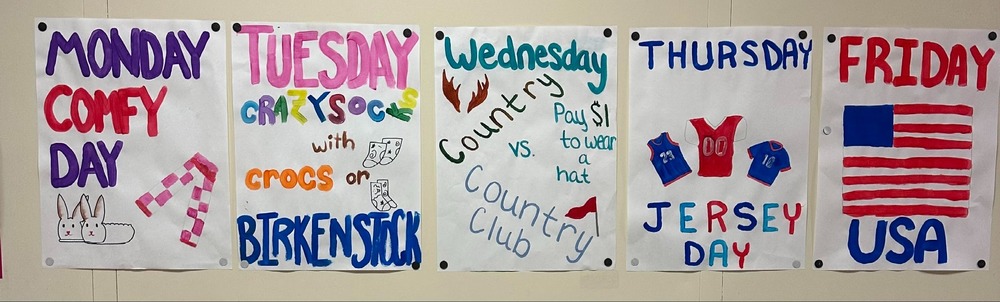 MONDAY
COMFY
DAY
TUESDAY
CRAZY SOCKS
with
crocs or
BIRKENSTOCK
Wednesday
Country
vs.
Country
Club
Pay $1
to wear
a
hat
THURSDAY
00
10
JERSEY
DAY
FRIDAY
USA